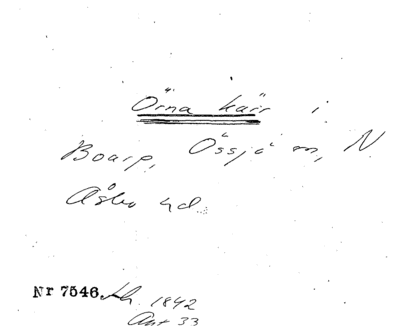 Örna kärr i
Boarp, Össjö sn, N.
Åsbo hd.
Nr 7546. Lh. 1842
Akt 33